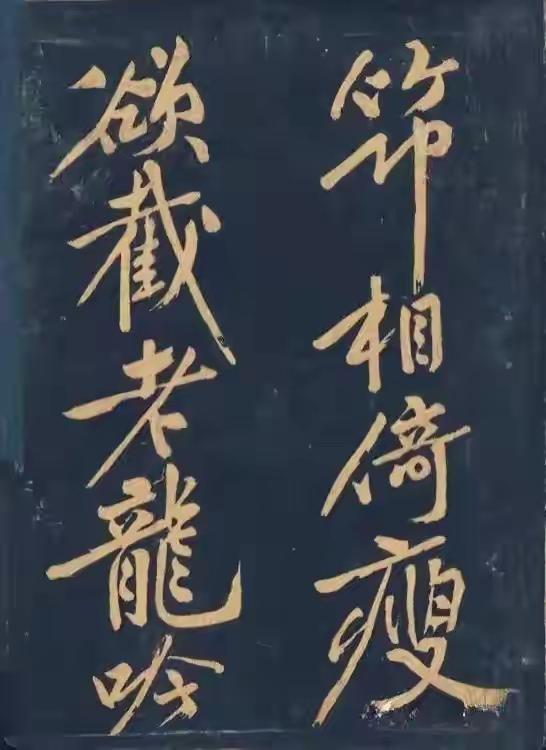 筇相倚瘦
欲截老龍吟